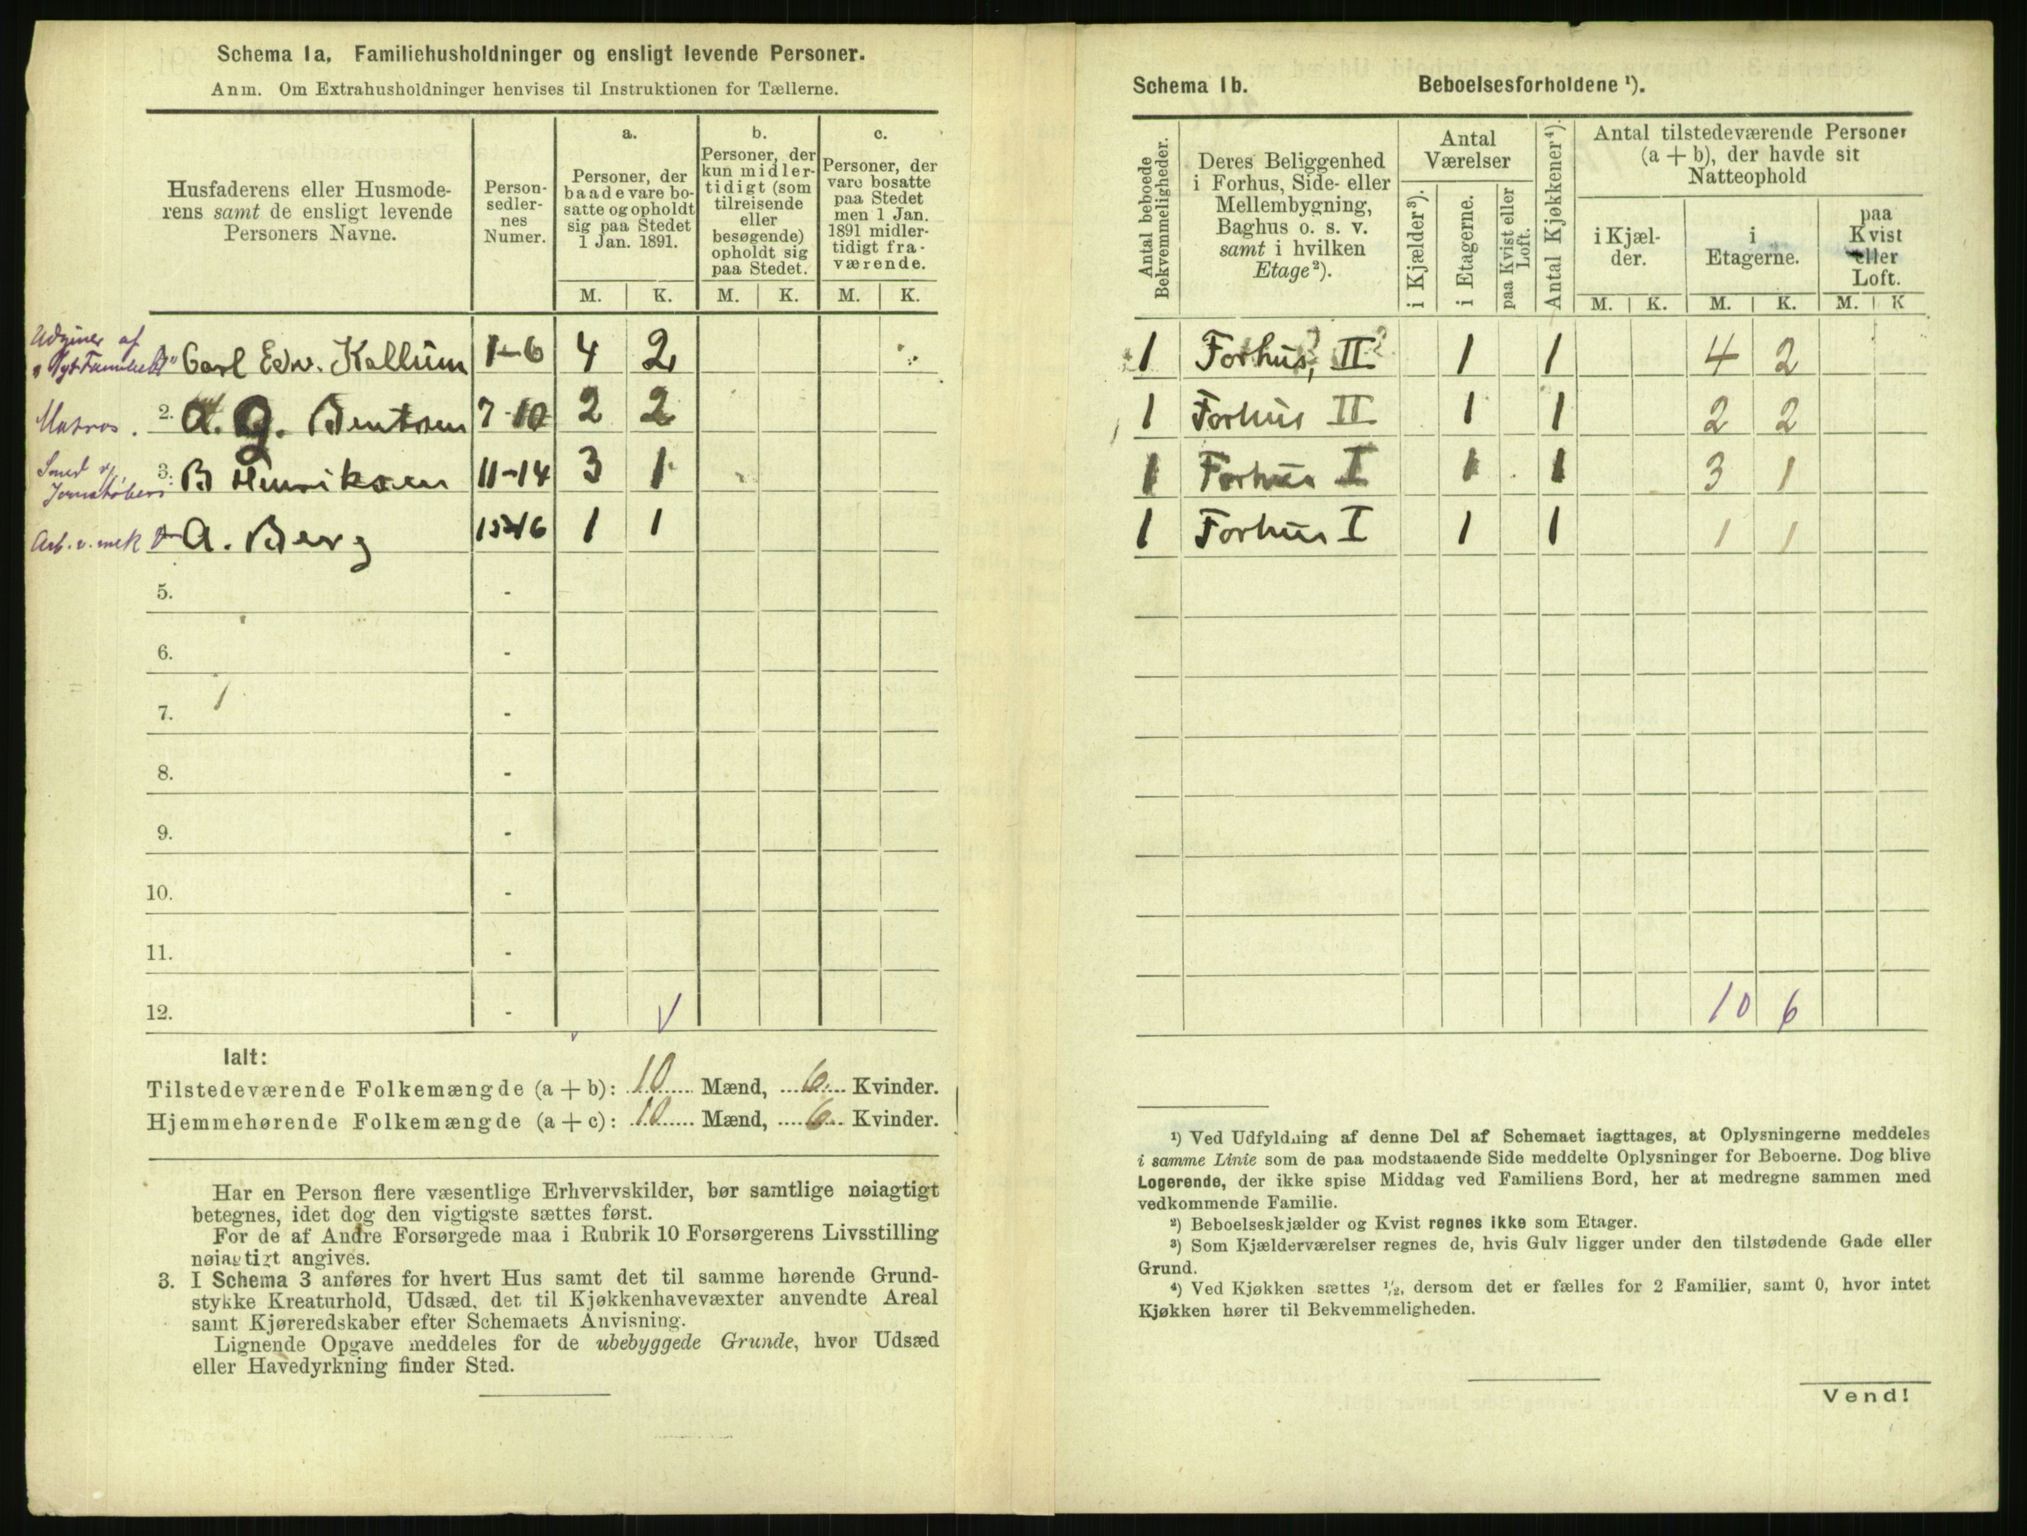 Schema 1a. Familiehusholdninger og ensligt levende Personer.
Anm. Om Extrahusholdninger henvises til Instruktionen for Tællerne.
Husfaderens eller Husmode-
rens samt de ensligt levende
Personers Navne.
Person-
sedler-
nes
Numer.
a.
Personer, der
baade vare bo-
satte og opholdt
sig paa Stedet
1 Jan. 1891.
b.
Personer, der
kun midler-
tidigt (som
tilreisende
eller
besøgende)
opholdt sig
paa Stedet.
c.
Personer, der
vare bosatte
paa Stedet
men 1 Jan.
1891 midler-
tidigt fra-
værende.
M. K. M. K. M. K.
Udgiver af
Carl Edv. Kallum 1-6 4 2
Matros. 2. A. G. Bentsen 7-10 2 2
Smed v/
Jernstøberi 3. B Henriksen 11-14 3 1
Arb. v. mek A. Berg 15-16 1 1
5. -
6. -
7. -
8. -
9. -
10. -
11. -
12. -
Ialt:
Tilstedeværende Folkemængde (a + b): 10 Mænd, 6 Kvinder.
Hjemmehørende Folkemængde (a + c): 10 Mænd, 6 Kvinder.
Har en Person flere væsentlige Erhvervskilder, bør samtlige nøiagtigt
betegnes, idet dog den vigtigste sættes først.
For de af Andre Forsørgede maa i Rubrik 10 Forsørgerens Livsstilling
nøiagtigt angives.
3. I Schema 3 anføres for hvert Hus samt det til samme hørende Grund-
stykke Kreaturhold, Udsæd, det til Kjøkkenhavevæxter anvendte Areal
samt Kjøreredskaber efter Schemaets Anvisning.
Lignende Opgave meddeles for de ubebyggede Grunde, hvor Udsæd
eller Havedyrkning finder Sted.
Schema 1b. Beboelsesforholdene ¹).
Antal beboede
Bekvemmeligheder.
Deres Beliggenhed
i Forhus, Side- eller
Mellembygning,
Baghus o. s. v.
samt i hvilken
Etage ²).
Antal
Værelser
i Kjælder ³).
i Etagerne.
paa Kvist eller
Loft.
Antal Kjøkkener ⁴).
Antal tilstedeværende Personer
(a + b), der havde sit
Natteophold
i Kjæl-
der.
i
Etagerne.
paa
Kvist
eller
Loft.
M. K. M. K. M. K
1 Forhus, II 1 1 4 2
1 Forhus II 1 1 2 2
1 Forhus I 1 1 3 1
1 Forhus I 1 1 1 1
10 6
¹) Ved Udfyldning af denne Del af Schemaet iagttages, at Oplysningerne meddeles
i samme Linie som de paa modstaaende Side meddelte Oplysninger for Beboerne. Dog blive
Logerende, der ikke spise Middag ved Familiens Bord, her at medregne sammen med
vedkommende Familie.
²) Beboelseskjælder og Kvist regnes ikke som Etager.
³) Som Kjælderværelser regnes de, hvis Gulv ligger under den tilstødende Gade eller
Grund.
⁴) Ved Kjøkken sættes ½, dersom det er fælles for 2 Familier, samt 0, hvor intet
Kjøkken hører til Bekvemmeligheden.
Vend!